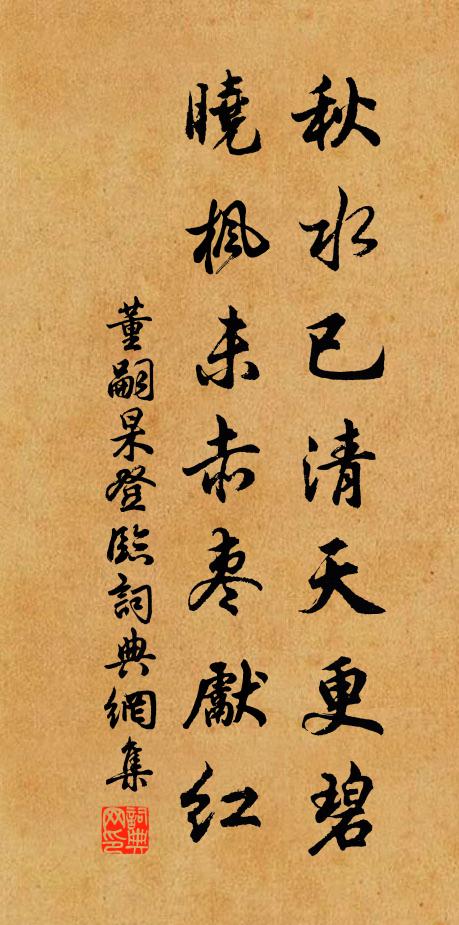 秋水已清天更碧
曉楓未赤枣獻红
董嗣杲登臨詞典網集
詞典网印